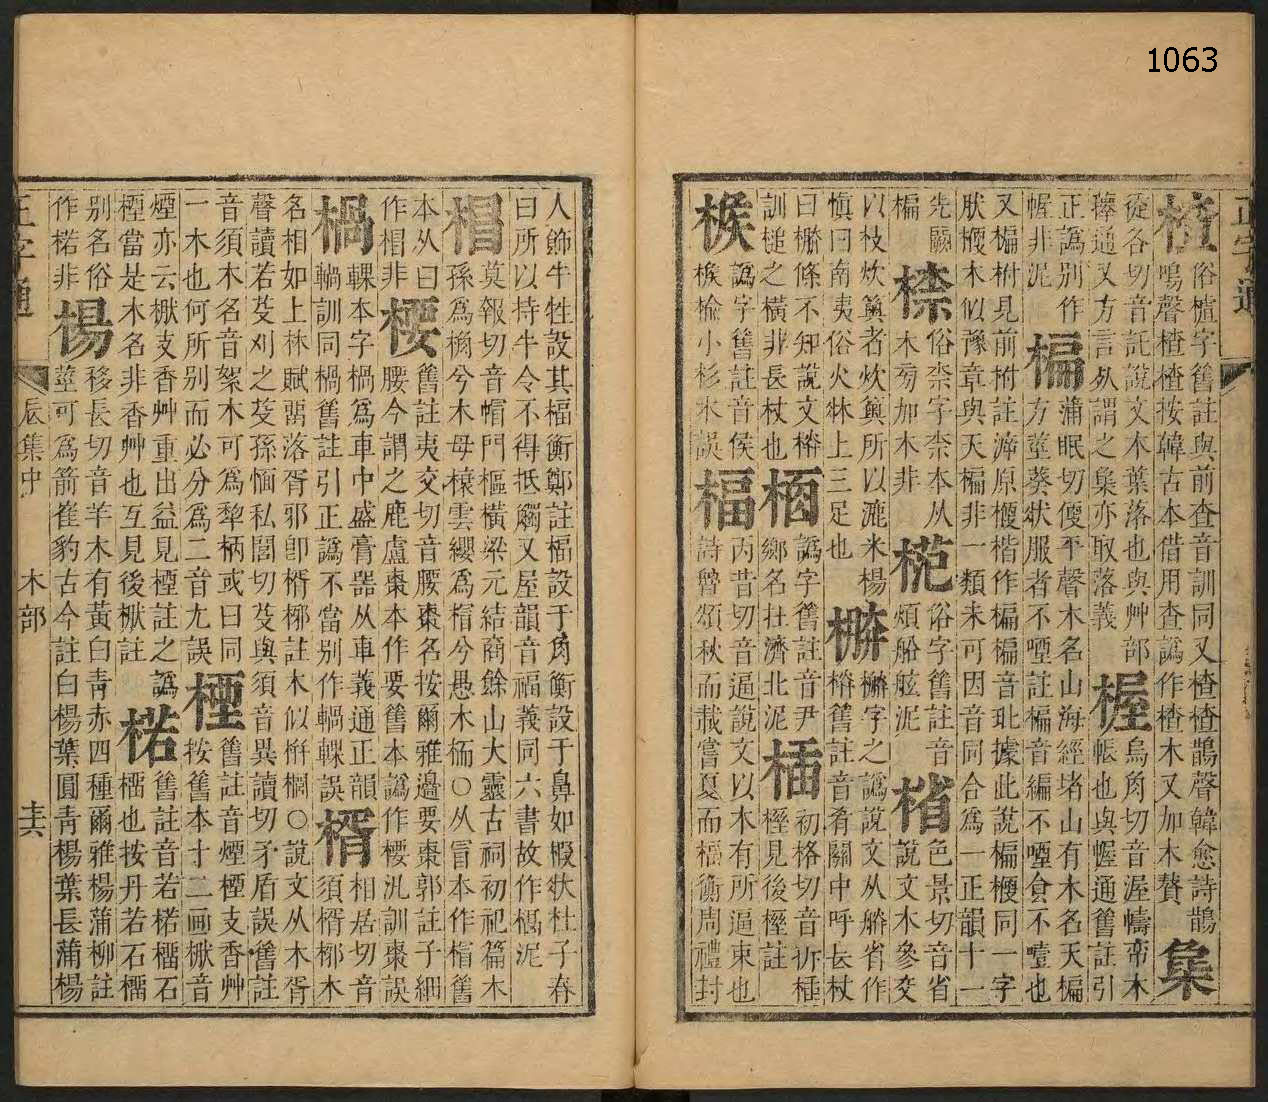 1063
正字通
楂 俗樝字舊註與前查音訓同又楂楂鵲聲韓愈詩鵲
鳴聲楂楂按韓古本借用查譌作楂木又加木贅 㯓
從各切音託說文木葉落也與艸部
蘀通又方言㱾謂之㯓亦取落義 楃 烏角切音渥幬帝木
帳也與幄通舊註引
正譌別作
幄非泥 楄 蒲眠切便平聲木名山海經堵山有木名天楄
方莖葵狀服者不㖶註楄音編不㖶食不噎也
又楄柎見前柎註漳原楩楷作楄楄音玭據此說楄楩同一字
肰楩木似豫章與天楄非一類未可因音同合爲一正韻十一
先闕
楄 㮏 俗柰字柰本从
木旁加木非 㮄 俗字舊註音
煩船舷泥 㮐 色景切音省
說文木參交
以枝炊䉛者炊䉛所以漉米楊
愼曰南夷俗火牀上三足也 㮁 㯗字之譌說文从㯗省作
㮁舊註音肴關中呼長杖
曰㮁條不知說文㮁
訓槌之橫非長杖也 㮌 譌字舊註音尹
鄉名在濟北泥 㮑 初格切音㧻㮑
㯅見後㯅註
㮢 譌字舊註音侯
㮢楡小杉木誤 楅 丙昔切音逼說文以木有所逼束也
詩魯頌秋而載嘗夏而楅衡周禮封
人飾牛牲設其楅衡鄭註楅設于角衡設于鼻如椵狀杜子春
曰所以持牛令不得抵觸又屋韻音福義同六書故作楅泥
椙 莫報切音帽門樞橫梁元結商餘山大靈古祠初祀篇木
孫爲桷兮木母榱雲纓爲楣兮愚木栭〇从冒本作楣舊
本从曰
作椙非 楆 舊註夷交切音腰棗名按爾雅邊要棗郭註子細
腰今謂之鹿盧棗本作要舊本譌作楆汎訓棗誤
楇 輠本字楇爲車中盛膏器从車義通正韻 相居切音
輠訓同楇舊註引正譌不當別作輠輠誤 楈 須楈枒木
名相如上林賦䍜落胥邪卽楈枒註木似栟櫚〇說文从木胥
聲讀若芟刈之芟孫愐私閭切芟與須音異讀切矛盾誤舊註
音須木名音絮木可爲犂柄或曰同
一木也何所別而必分爲二音尤誤 㮒 舊註音煙㮒支香艸
按舊本十二畫樕音
煙亦云樕支香艸重出益見㮒註之譌
㮒當是木名非香艸也互見後樕註 楉 舊註音若楉榴石
榴也按丹若石榴
別名俗
作楉非 楊 移長切音羊木有黃白靑赤四種爾雅楊蒲柳註
莖可爲箭崔豹古今註白楊葉圓靑楊葉長蒲楊
正字通
辰集中
木部